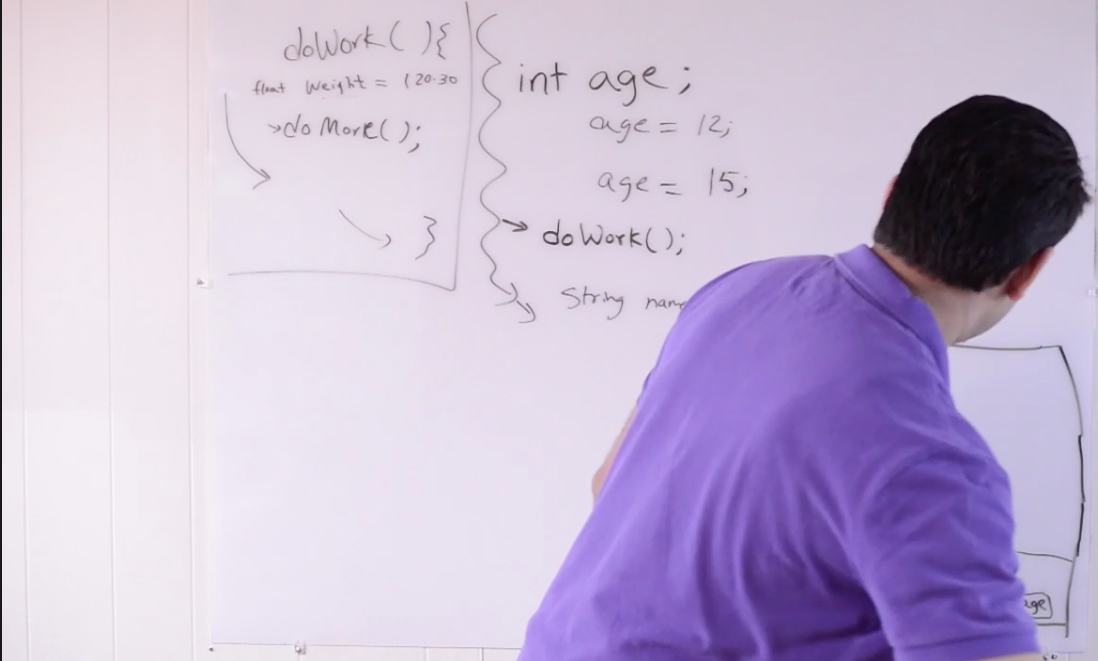 doWork( ){
float Weight = 120.30
doMore();
}
int age;
age = 12;
age = 15;
doWork();
String name
age